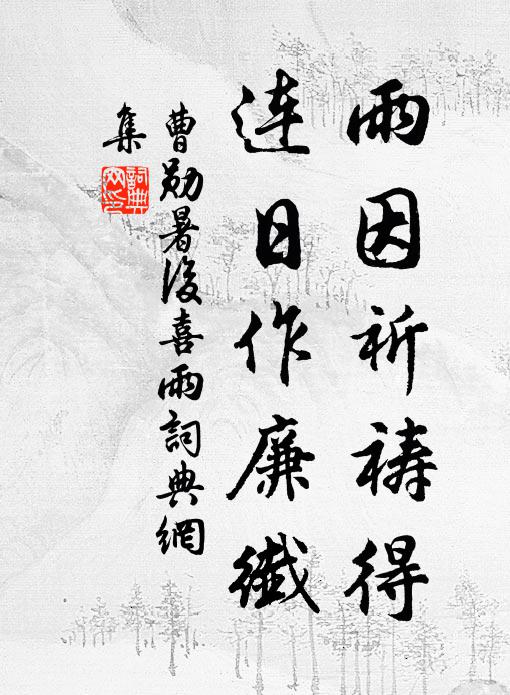 雨因祈禱得
連日作廉纖
曹勛暑後喜雨詞典網
集
詞典
网印